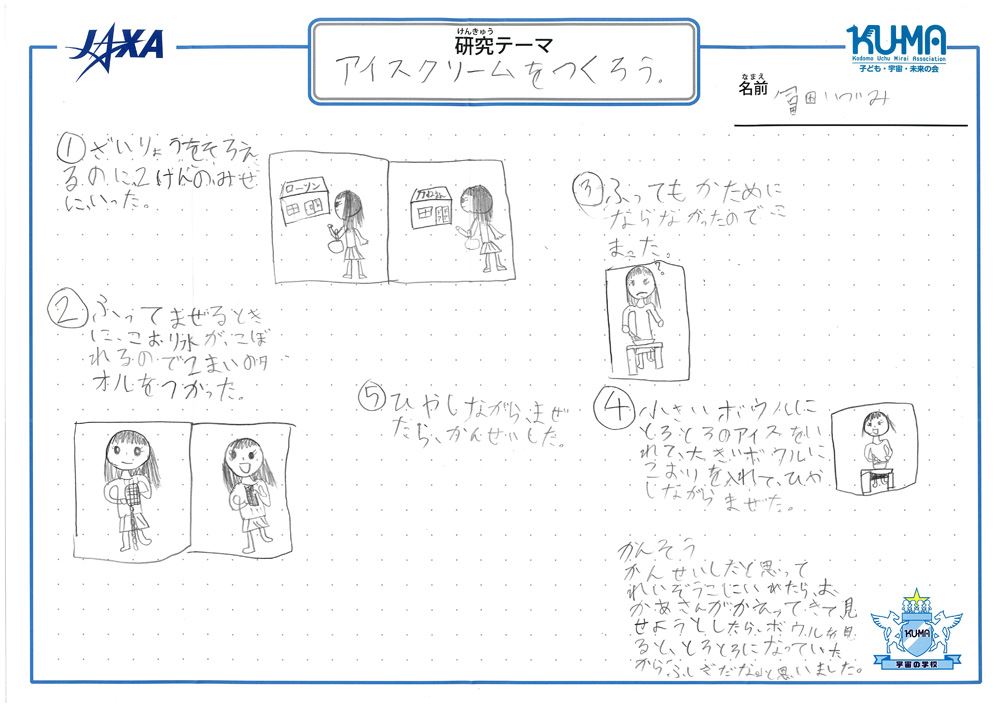 JAXA
けんきゅう
研究テーマ
アイスクリームをつくろう。
KU-MA
Kodomo Uchu Mirai Association
子ども・宇宙・未来の会
なまえ
名前
冨田いづみ
① ざいりょうをそろえ
るのに、2けんのみせ
に、いった。
ローソン
② ふってまぜるとき
に、こおり水が、こぼ
れるので2まいのタ
オルをつかった。
③ ふってもかために
ならなかったのでこ
まった。
?
④ 小さいボウルに
とろとろのアイスをい
れて、大きいボウルに
こおりを入れて、ひや
しながらまぜた。
⑤ ひやしながら、まぜ
たら、かんせいした。
かんそう
かんせいしたと思って
れいぞうこにいれたら、お
かあさんがかえってきて見
せようとしたら、ボウルを見
ると、とろとろになっていた
からふしぎだなと思いました。
KUMA
宇宙の学校